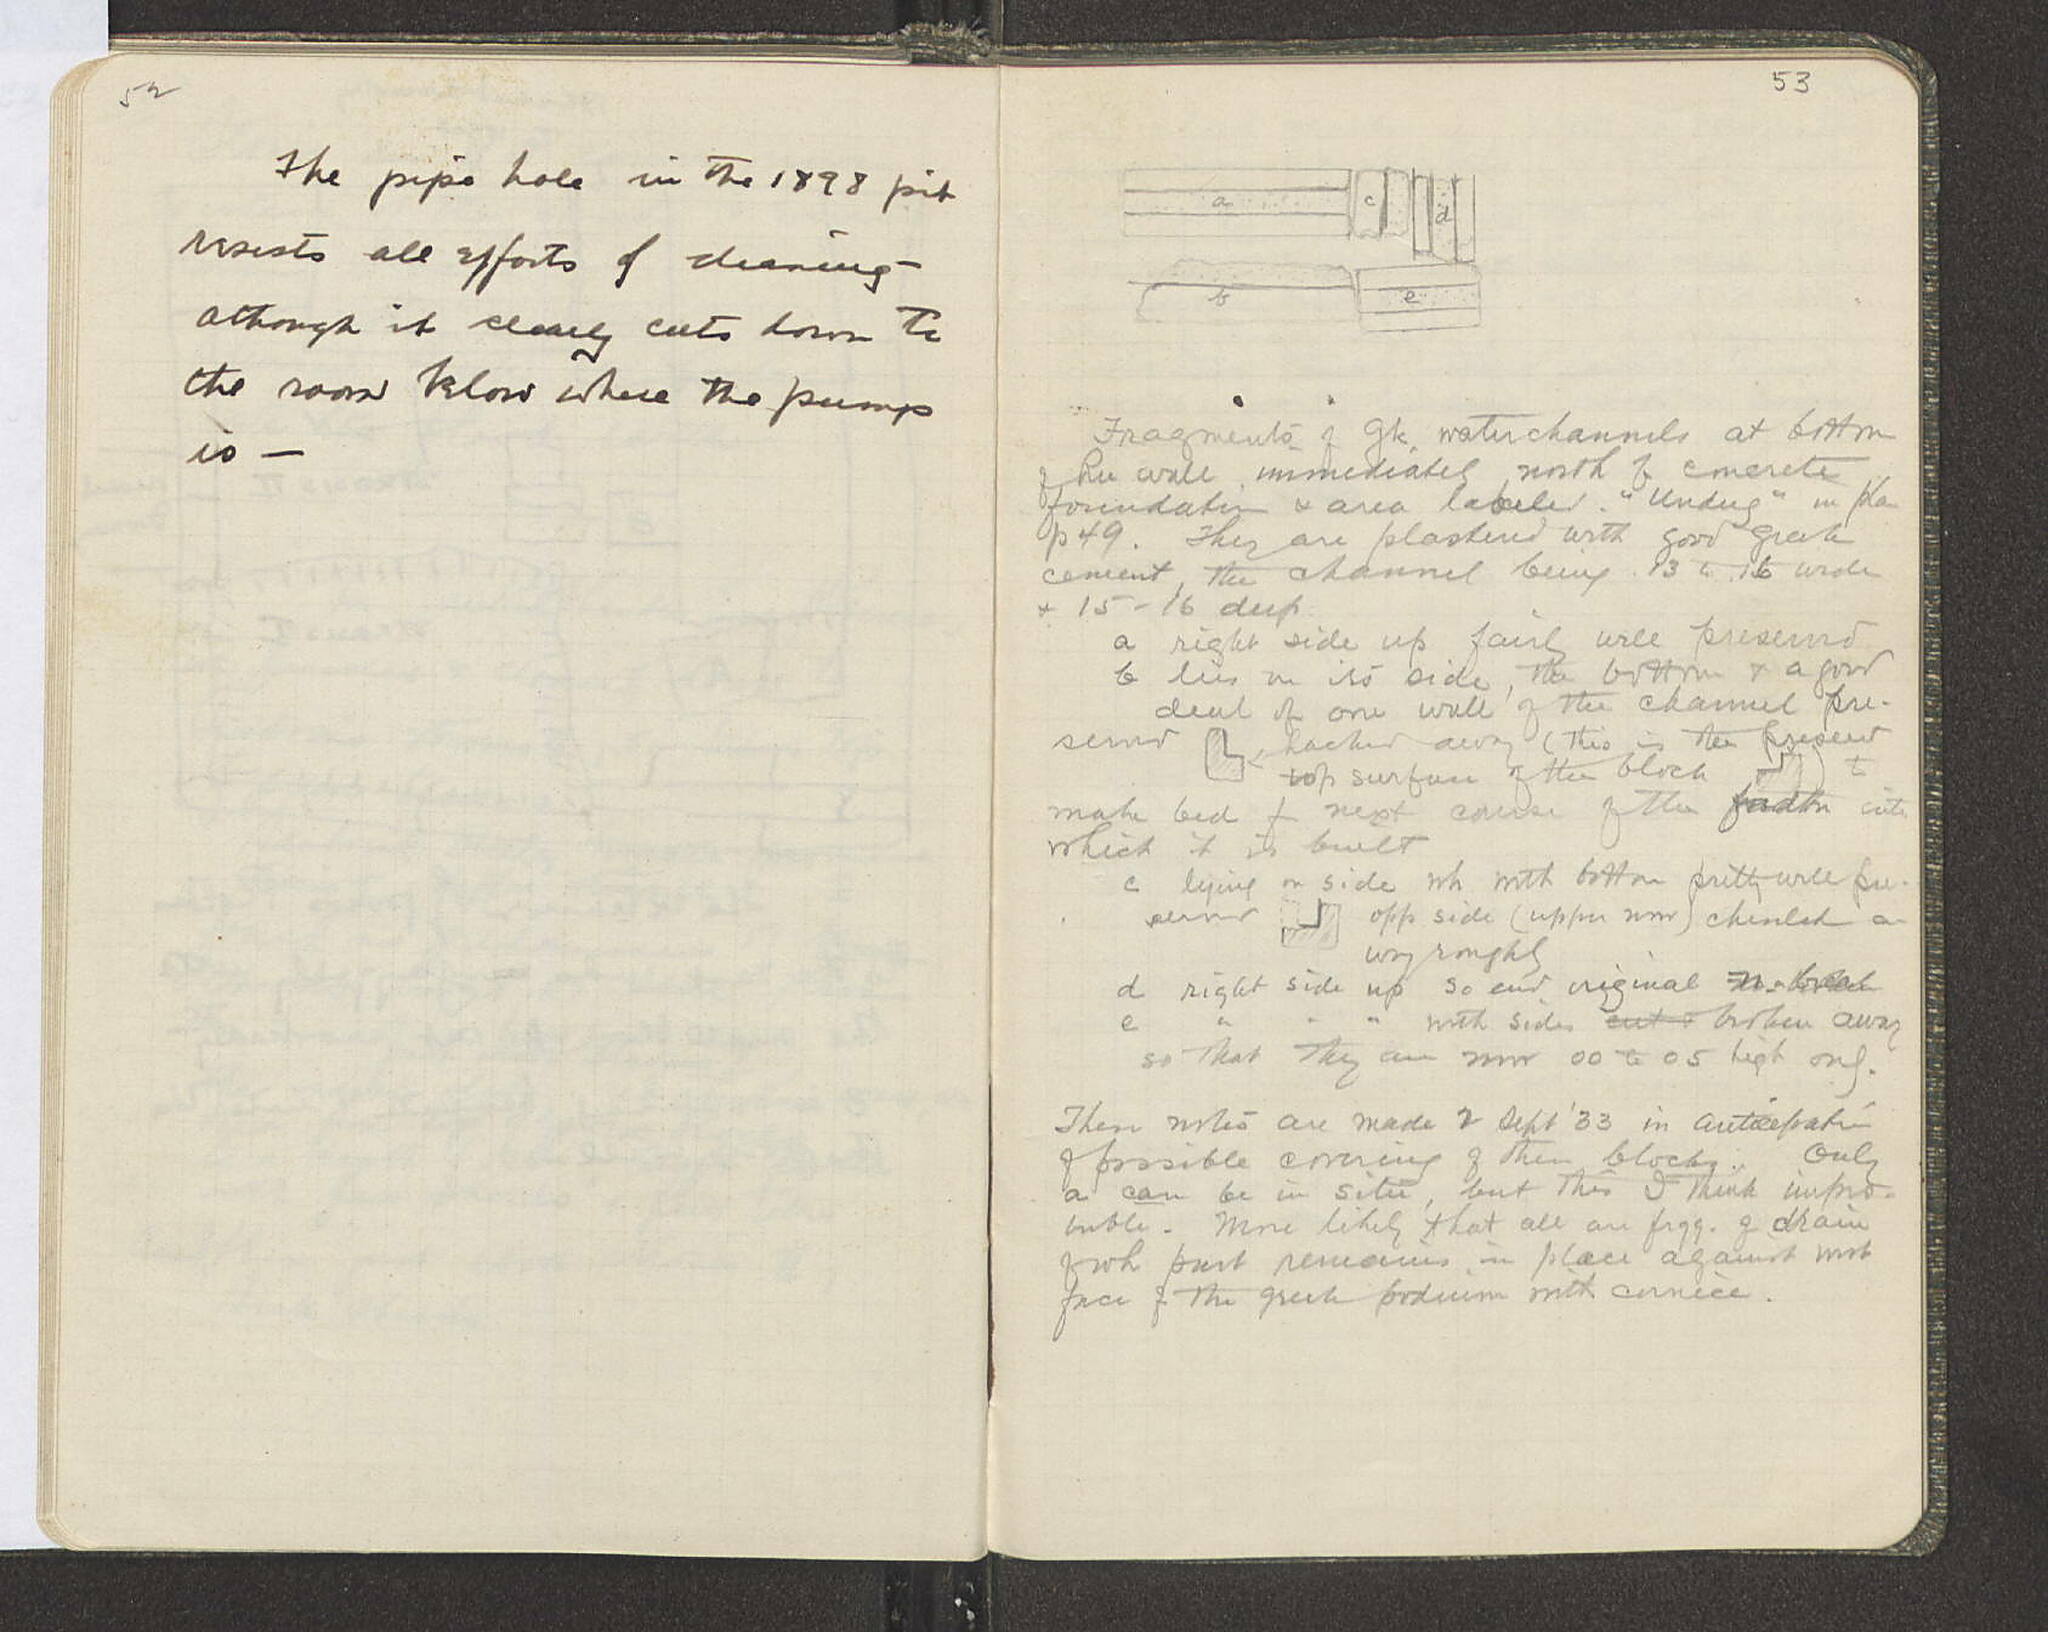 52
The pipe hole in the 1898 pit
resists all efforts of cleaning
although it clearly cuts down to
the room below where the pump
is —
53
a c d
b e
Fragments of Gk. waterchannels at bottom
of wall immediately north of concrete
foundation & area labeled "Undug" in
p 49. They are plastered with good Greek
cement, the channel being .13 to .16 wide
& 15-16 deep.
a right side up fairly well preserved
b lies on its side, the bottom & a good
deal of one wall of the channel pre-
served hacked away (this is the present
top surface of the block ) to
make bed for next course of the fndtn into
which it is built
c lying on side wh with bottom pretty well pre-
served opp side (upper now) chiseled a-
way roughly
d right side up so end original
e " " " with sides broken away
so that they are now 00 to 05 high only.
These notes are made 2 Sept '33 in anticipation
of possible covering of these blocks. Only
a can be in situ, but this I think impro-
bable. More likely that all are frgg. of drain
of wh part remains in place against west
face of the Greek podium with cornice.